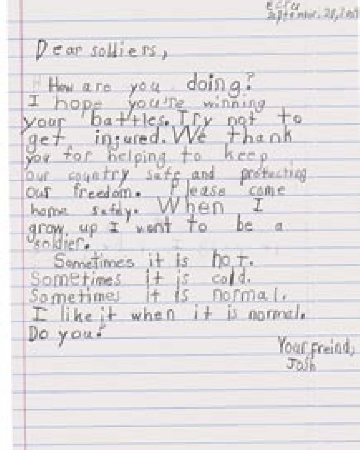 September, 28, 20
Dear soldiers,
How are you doing?
I hope you're winning
your battles. Try not to
get injured. We thank
you for helping to keep
our country safe and protecting
our freedom. Please come
home safely. When I
grow up I want to be a
soldier.
Sometimes it is hot.
Sometimes it is cold.
Sometimes it is normal.
I like it when it is normal.
Do you?
Your freind,
Josh